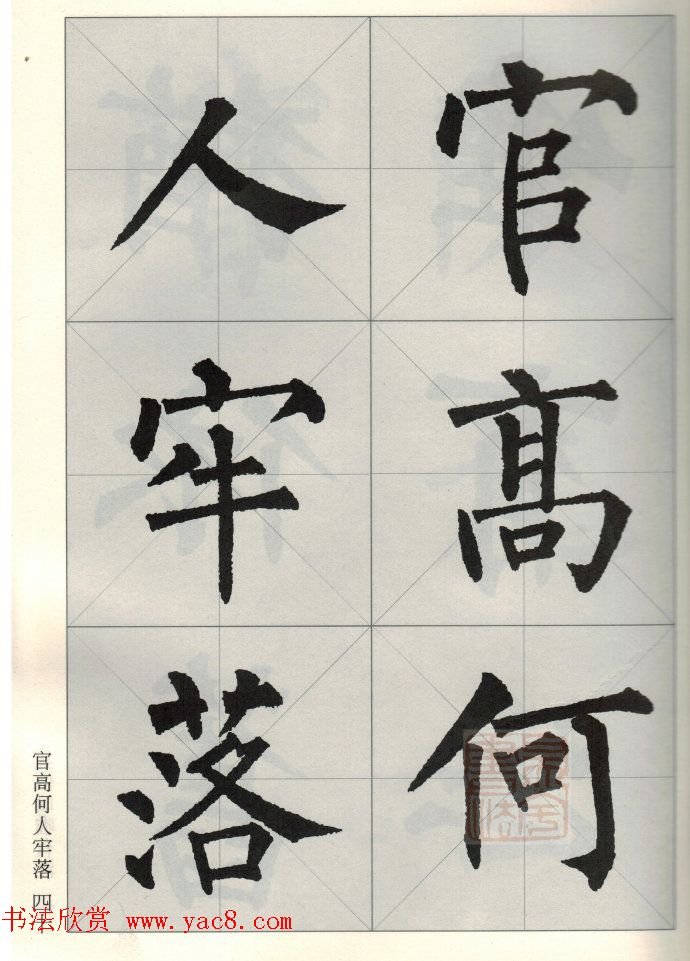 官髙何
人牢落
官高何人牢落 四
书法欣赏 www.yac8.com